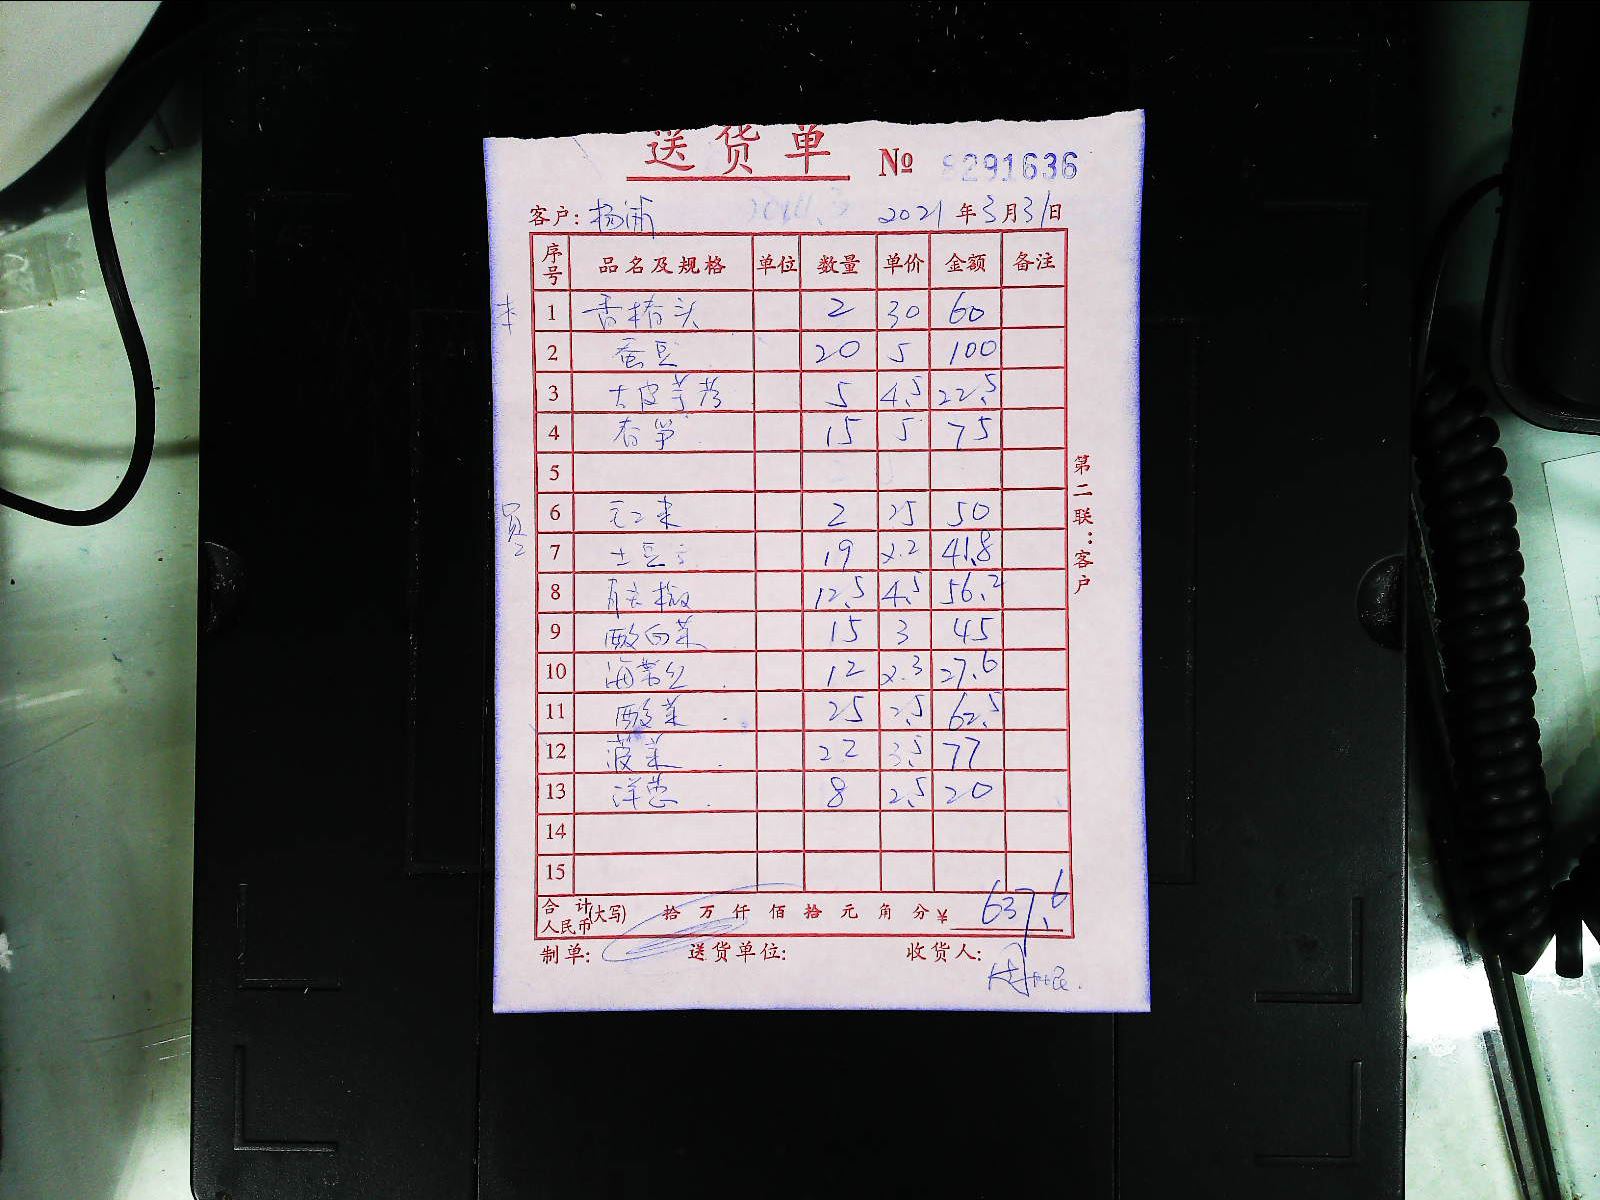 送货单 № 8291636
客户: 杨浦 2021年3月31日
序号 品名及规格 单位 数量 单价 金额 备注
1 香椿头 2 30 60
2 蚕豆 20 5 100
3 大皮芋艿 5 4.5 22.5
4 春笋 15 5 75
5
6 2 25 50
7 土豆 19 2.2 41.8
8 12.5 4.5 56.2
9 酸白菜 15 3 45
10 海带丝 12 2.3 27.6
11 酸菜 25 2.5 62.5
12 菠菜 22 3.5 77
13 洋葱 8 2.5 20
14
15
合计人民币(大写) 拾 万 仟 佰 拾 元 角 分 ¥ 637.6
制单: 送货单位: 收货人:
第二联:客户